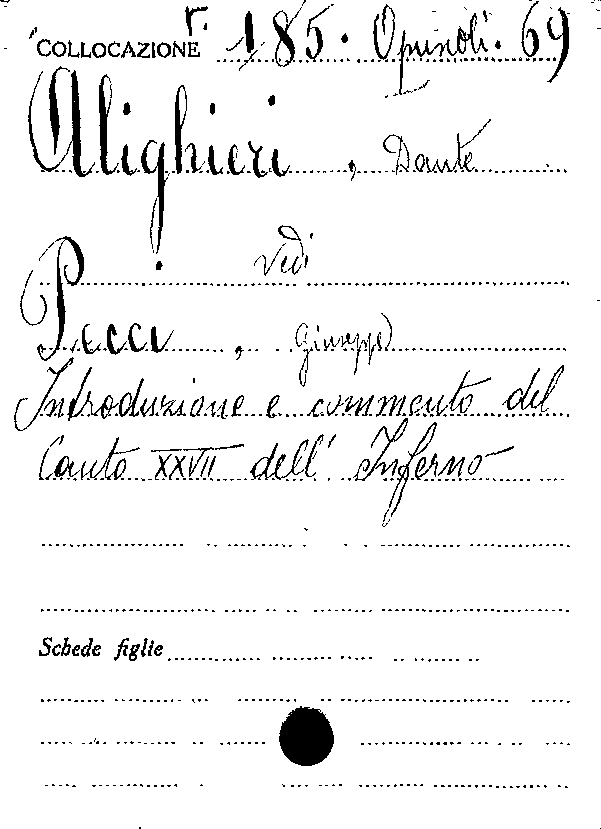 COLLOCAZIONE r. 185. Opuscoli. 69
Alighieri, Dante
Vedi
Pecci, Giuseppe
Introduzione e commento del
Canto XXVII dell' Inferno
Schede figlie